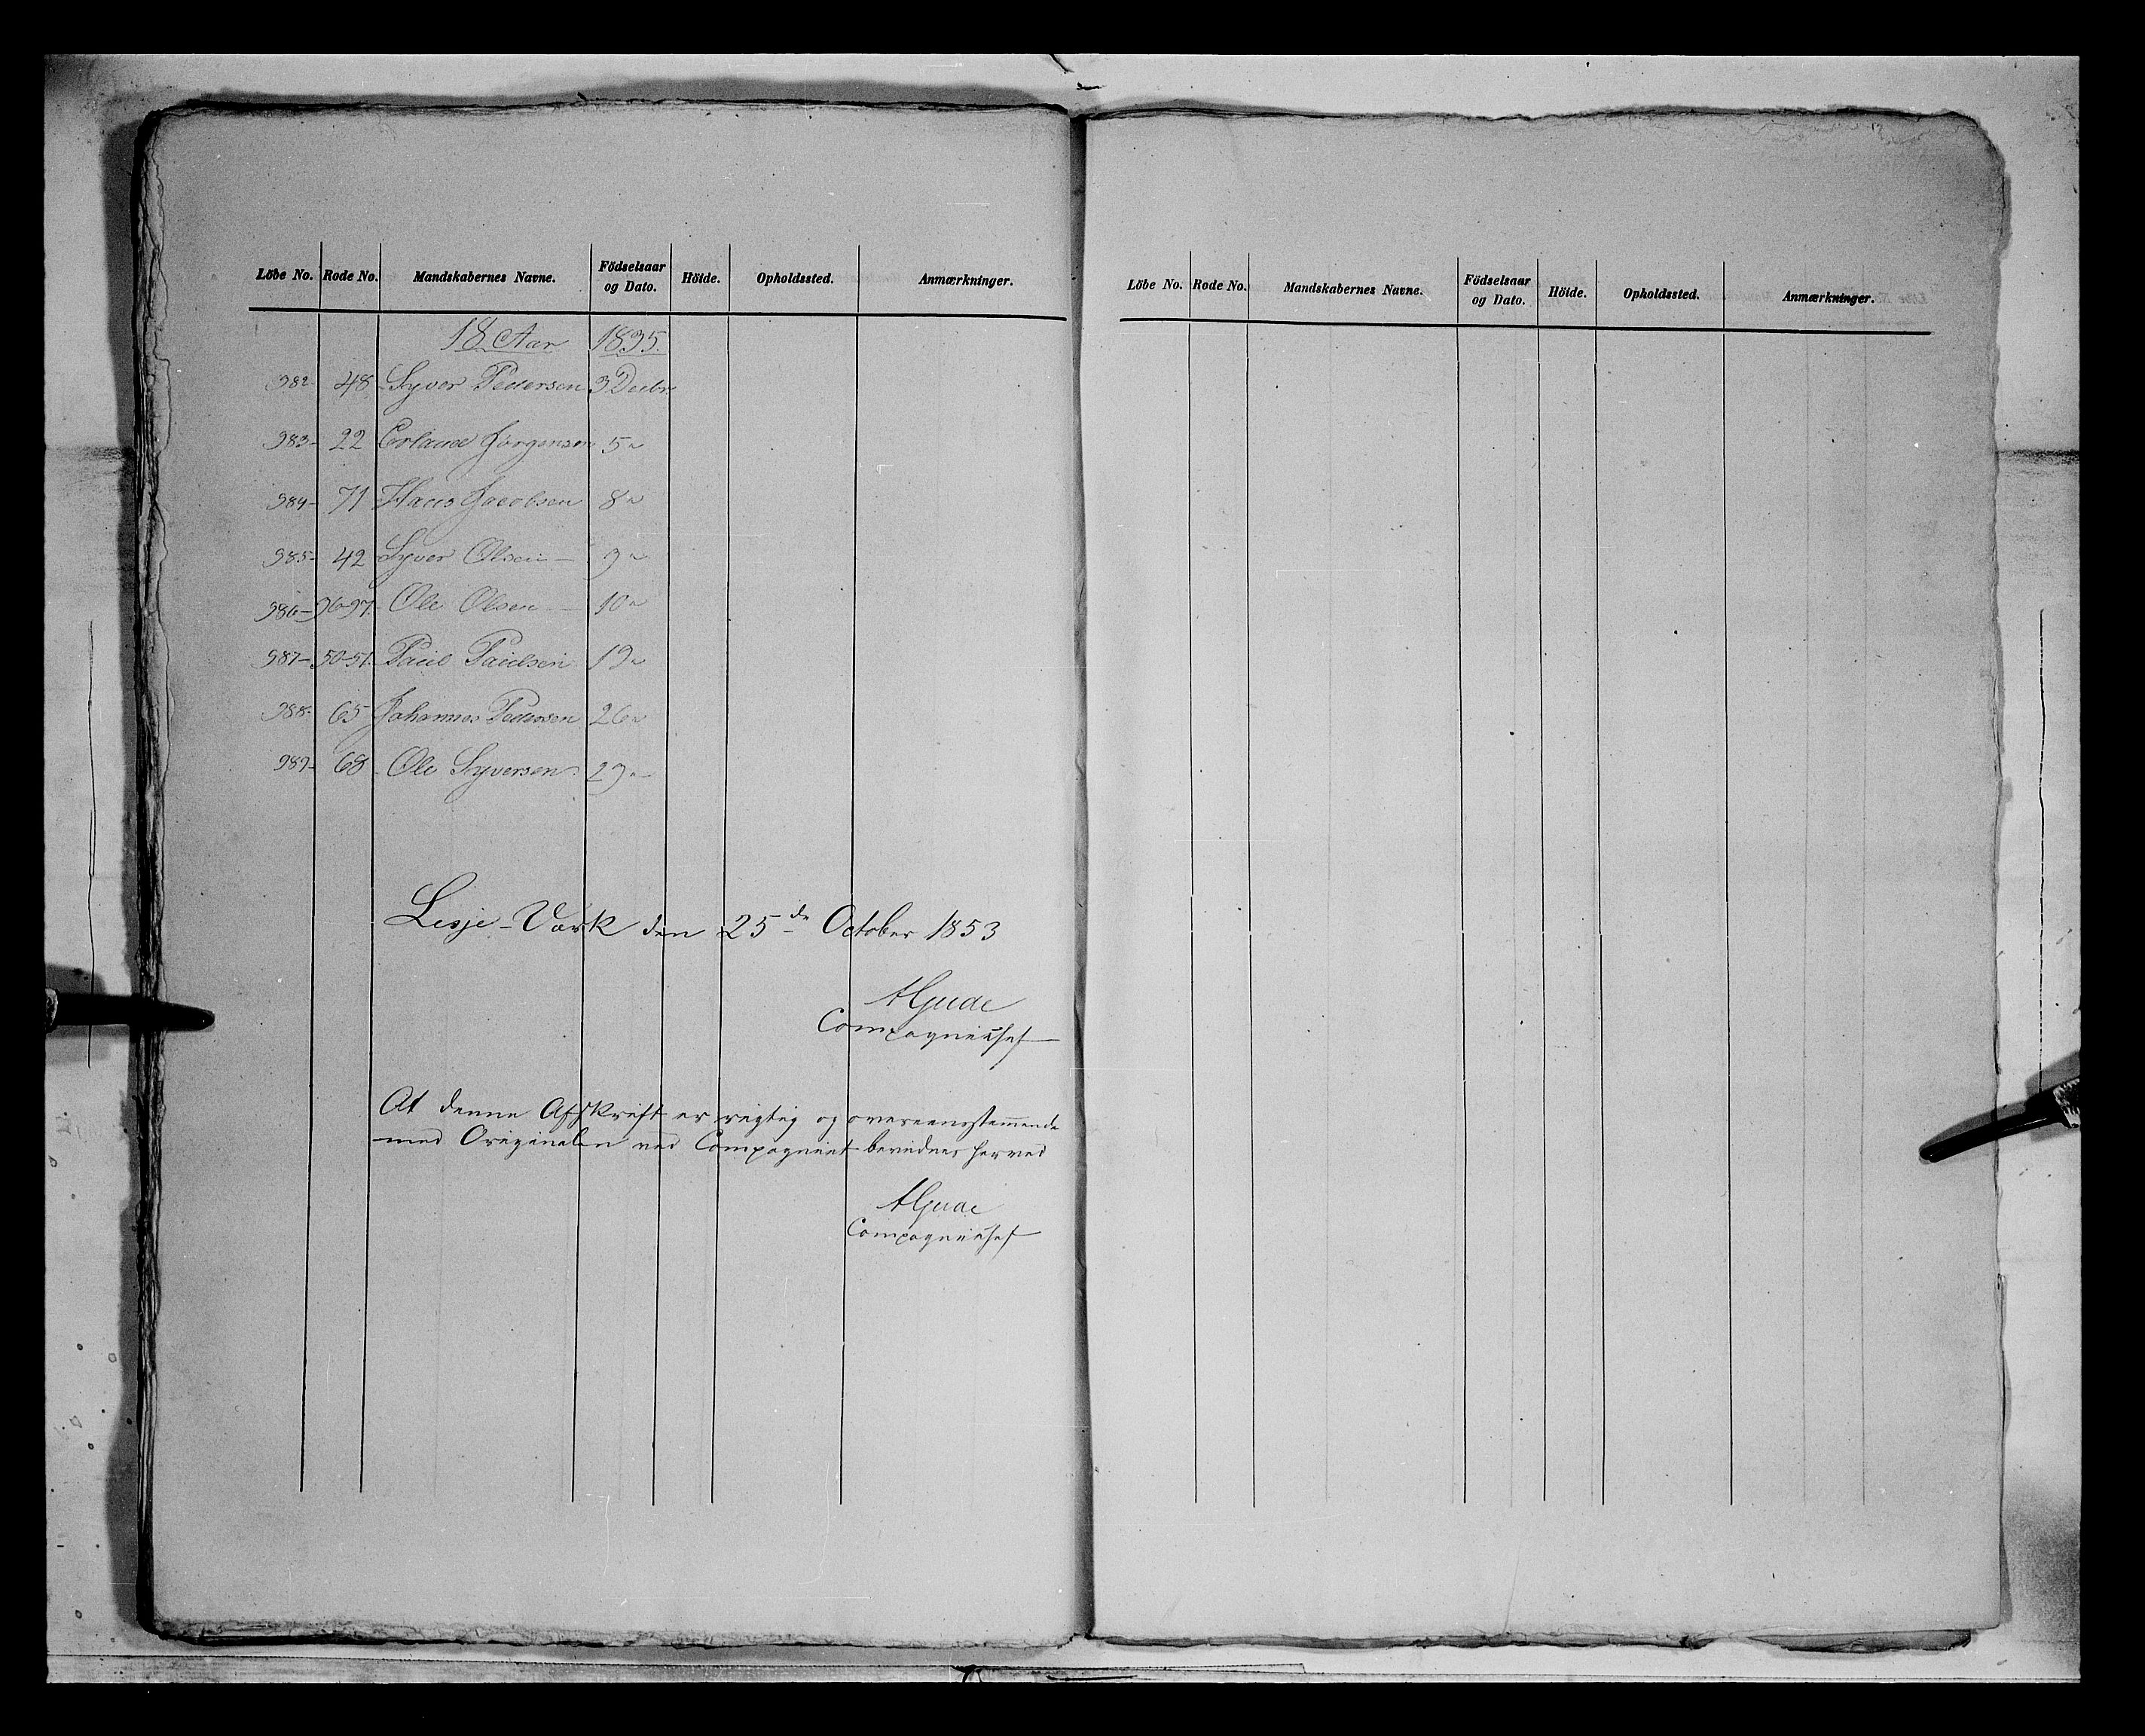 Löbe No. Rode No. Mandskabernes Navne. Födselsaar og Dato. Höide. Opholdssted. Anmærkninger.
18 Aar 1835.
982- 48 Syver Pedersen 3 Decbr
983- 22 Erland Jörgensen 5 "
984- 71 Hans Jacobsen 8 "
985- 42 Syver Olsen - 9 "
986- 96-97 Ole Olsen - 10 "
987- 50-51 Paul Paulsen 19 "
988- 65 Johannes Pedersen 26 "
989- 68 Ole Syversen 29 "
Lesje-Værk den 25de October 1853
AGude
Compagniechef
At denne Afskrift er rigtig og overeensstemmende
med Originalen ved Compagniet bevidnes herved
AGude
Compagniechef
Löbe No. Rode No. Mandskabernes Navne. Födselsaar og Dato. Höide. Opholdssted. Anmærkninger.